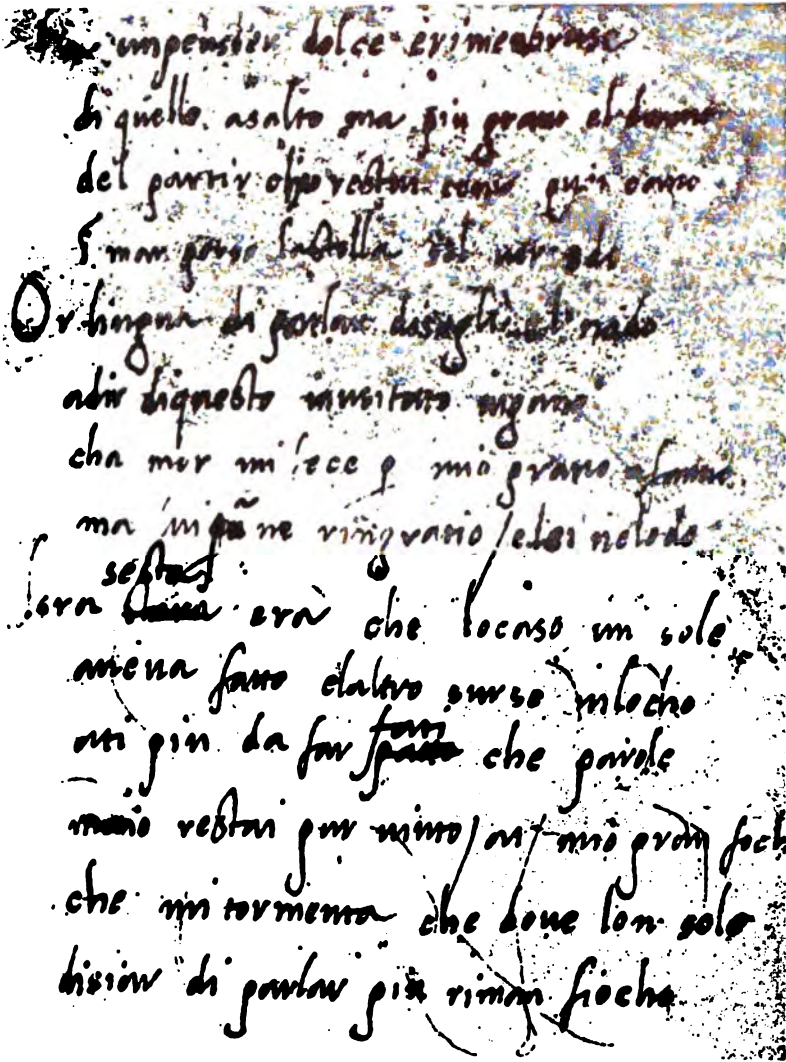 un pensier dolce e rimembrase
di quello asalto ma piu grave el danno
del partir chio restai como quei cano
i mar perso la stella sel ver odo
Or lingua di parlar disogli el nodo
adir diquesto inusitato ingano
cha mor mi fece p mio gravo afanno
ma lui pu ne ringratio / elei nelodo
lora sesta era che locaso un sole
aueva fatto elaltro surse in locho
ati piu da far fati che parole
maio restai pur vinto / al mio gran foch
che mi tormenta che dove lon sole
disiar di parlar piu riman fiocho